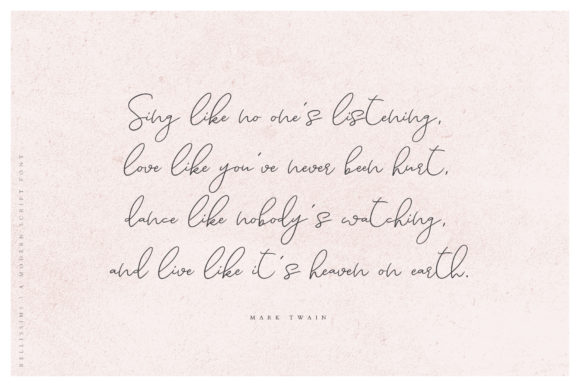 Sing like no one's listening,
love like you've never been hurt,
dance like nobody's watching,
and live like it's heaven on earth.
MARK TWAIN
BELLISSIMY \ A MODERN SCRIPT FONT